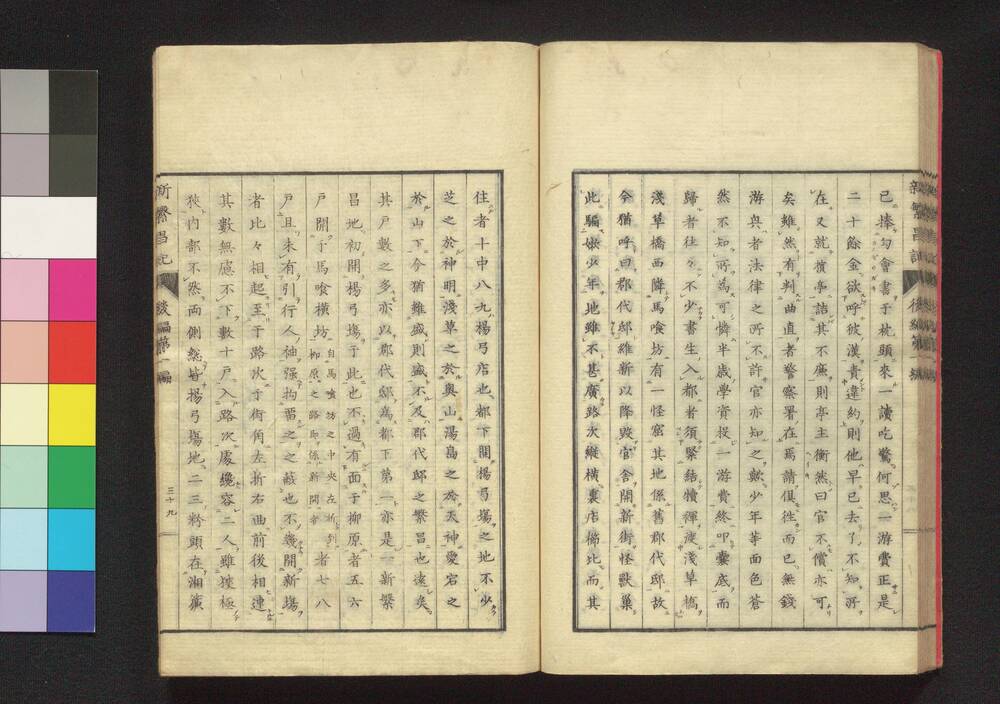 己捧勾會書于枕頭來一讀吃驚何思一游賞正是
二十餘金欲呼彼漢責違約則他早已去了不知所
在又就擯亭詰其不廉則亭主衡然曰官不償亦可
矣雖然有判曲直者警察署在焉請俱徃而已無錢
游興者法律之所不許官亦知之歟少年華面色蒼
然不知所為可憐半歳學資投一游賞終叩囊底而
歸者往々不少書生入都者須緊結犢褌渡淺草橋
淺草橋西隣馬喰坊有一怪窟其地係舊郡代邸故
今猶呼曰郡代邸維新以降毀官舎開新街怪獸巣
此騙嫩少年地雖不甚廣路次縱横裏店櫛比而其
新繁昌記
後編第一編
住者十中八九楊弓店也都下開楊弓塲之地不少
芝之於神明淺草之於奥山湯島之於天神愛宕之
於山下今猶雖盛則盛不及郡代邸之繁昌也遠矣
其戸數之多亦以郡代邸為都下第一亦是一新繁
昌地初開楊弓塲于此也不過有面于柳原者五六
戸開于馬喰横坊自馬喰坊之中央左折到柳原之路即係新開者者七八
戸且未有引行人袖强拘畱之之蔽也不幾開新塲
者比々相起至于路次于街角左折右曲前後相連
其數無慮不下數十戸入路次處纔容二人雖狹極
狹内部不然兩側㮣皆楊弓塲地二三粉頭在湘簾
新繁昌記
後編第一編
三十九